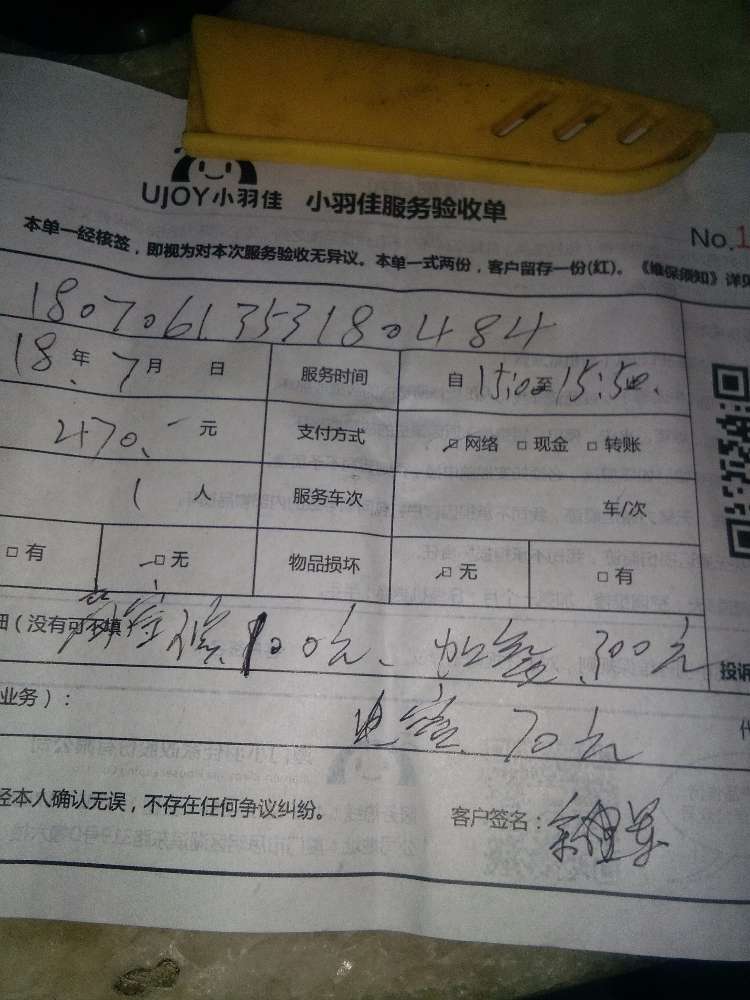 UJOY小羽佳 小羽佳服务验收单
No.1
本单一经核签，即视为对本次服务验收无异议。本单一式两份，客户留存一份(红)。《维保须知》详见
1807061353180484
18年 7月 日 服务时间 自 15:10至 15:50.
470.- 元 支付方式 □ 网络 □ 现金 □ 转账
1 人 服务车次 车/次
□ 有 □ 无 物品损坏 □ 无 □ 有
细（没有可不填）
100元、 300元
投诉
业务）： 70元
经本人确认无误，不存在任何争议纠纷。 客户签名：